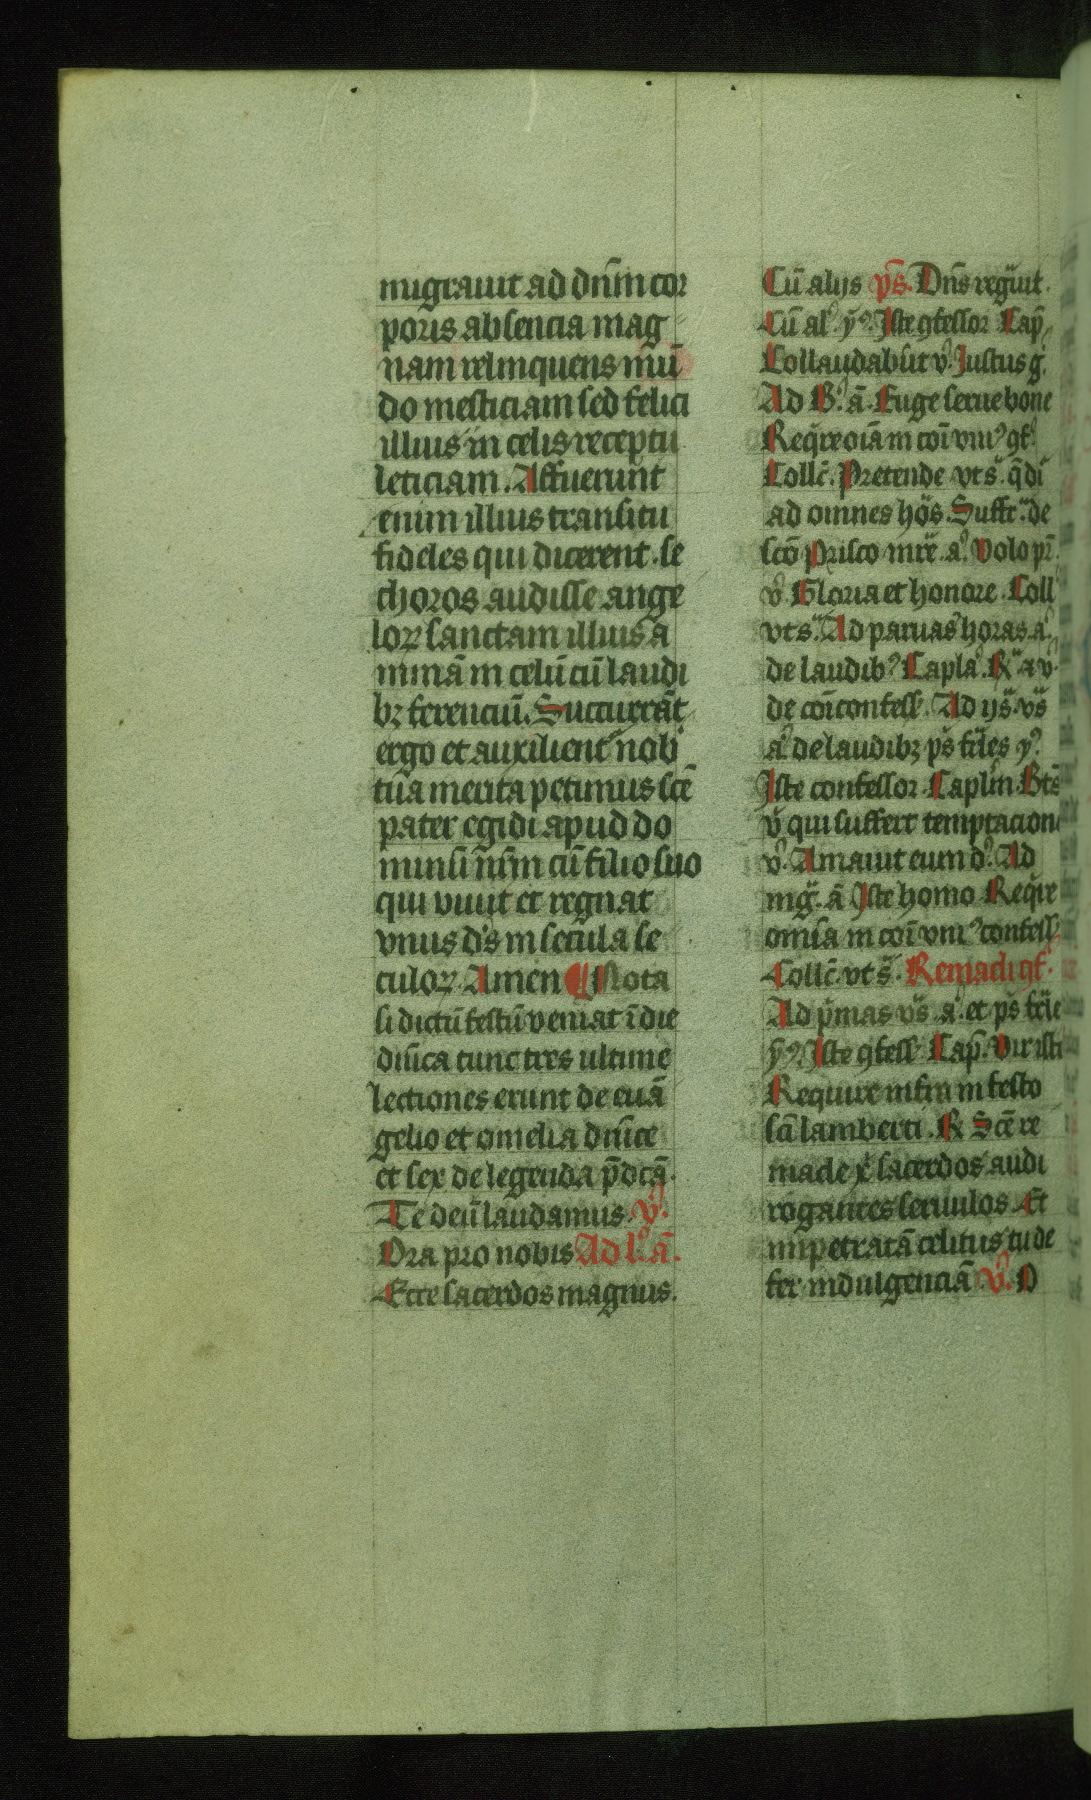 migrauit ad dn̄m cor
poris absencia mag
nam relinquens mū
do mesticiam sed felici
illius in celis receptu
leticiam. Affuerunt
enim illius transitu
fideles qui dicerent se
choros audisse ange
loꝝ sanctam illius a
nimā in celū cū laudi
bꝫ ferenciū. Succurrāt
ergo et auxilient᷑ nob᷑
tua merita petimus sc̄e
pater egidi apud do
minū nr̄m cū filio suo
qui viuit et regnat
vnus ds̄ in secula se
culoꝝ. Amen ¶ Nota
si dictū festū veniat ī die
dn̄ica tunc tres ultime
lectiones erunt de euā
gelio et omelia dn̄ice
et sex de legenda p̄dcā.
Te deū laudamus. v̉.
Ora pro nobis Ad l. ā.
Ecce sacerdos magnus.
Cū alijs ps̄. Dn̄s regnut.
Cū al᷑ ẏꝰ. Iste ꝯfessor Cap̄
Collaudabūt v̉. Iustus g̉.
Ad B. ā. Euge serue bone
Req̄re oīa in coī vniꝰ ꝯf᷑
Collc̄. Pretende vt s᷑. q̄ di
ad omnes hōs. Suffr᷑. de
scō Prisco mr̄e. a᷑. Volo pr̄.
v̉. Gloria et honore. Coll᷑
vt s᷑. Ad paruas horas a᷑.
de laudibꝰ Capla᷑. R᷑ et v̉.
de coī confess᷑. Ad ijs᷑. vs᷑
a᷑ de laudibꝫ ps̄ fr̄les ẏꝰ.
Iste confessor. Caplm̄. Bt̄s
v᷑ qui suffert temptacion
v̉. Amauit eum d᷑. Ad
mḡ. ā Iste homo Req̄re
omīa in coī vniꝰ confess᷑
Collc̄. vt s᷑. Remacli ꝯf᷑.
Ad p̄mas vs᷑. a᷑. et ps̄ fr̄le
ẏꝰ. Iste ꝯfess᷑ Cap̄. Vir isti
Require infra in festo
scī lamberti. R᷑ Sc̄e re
macle xp̄i sacerdos audi
rogantes seruulos Et
impetratā celitus tu de
fer indulgenciā v̉. O